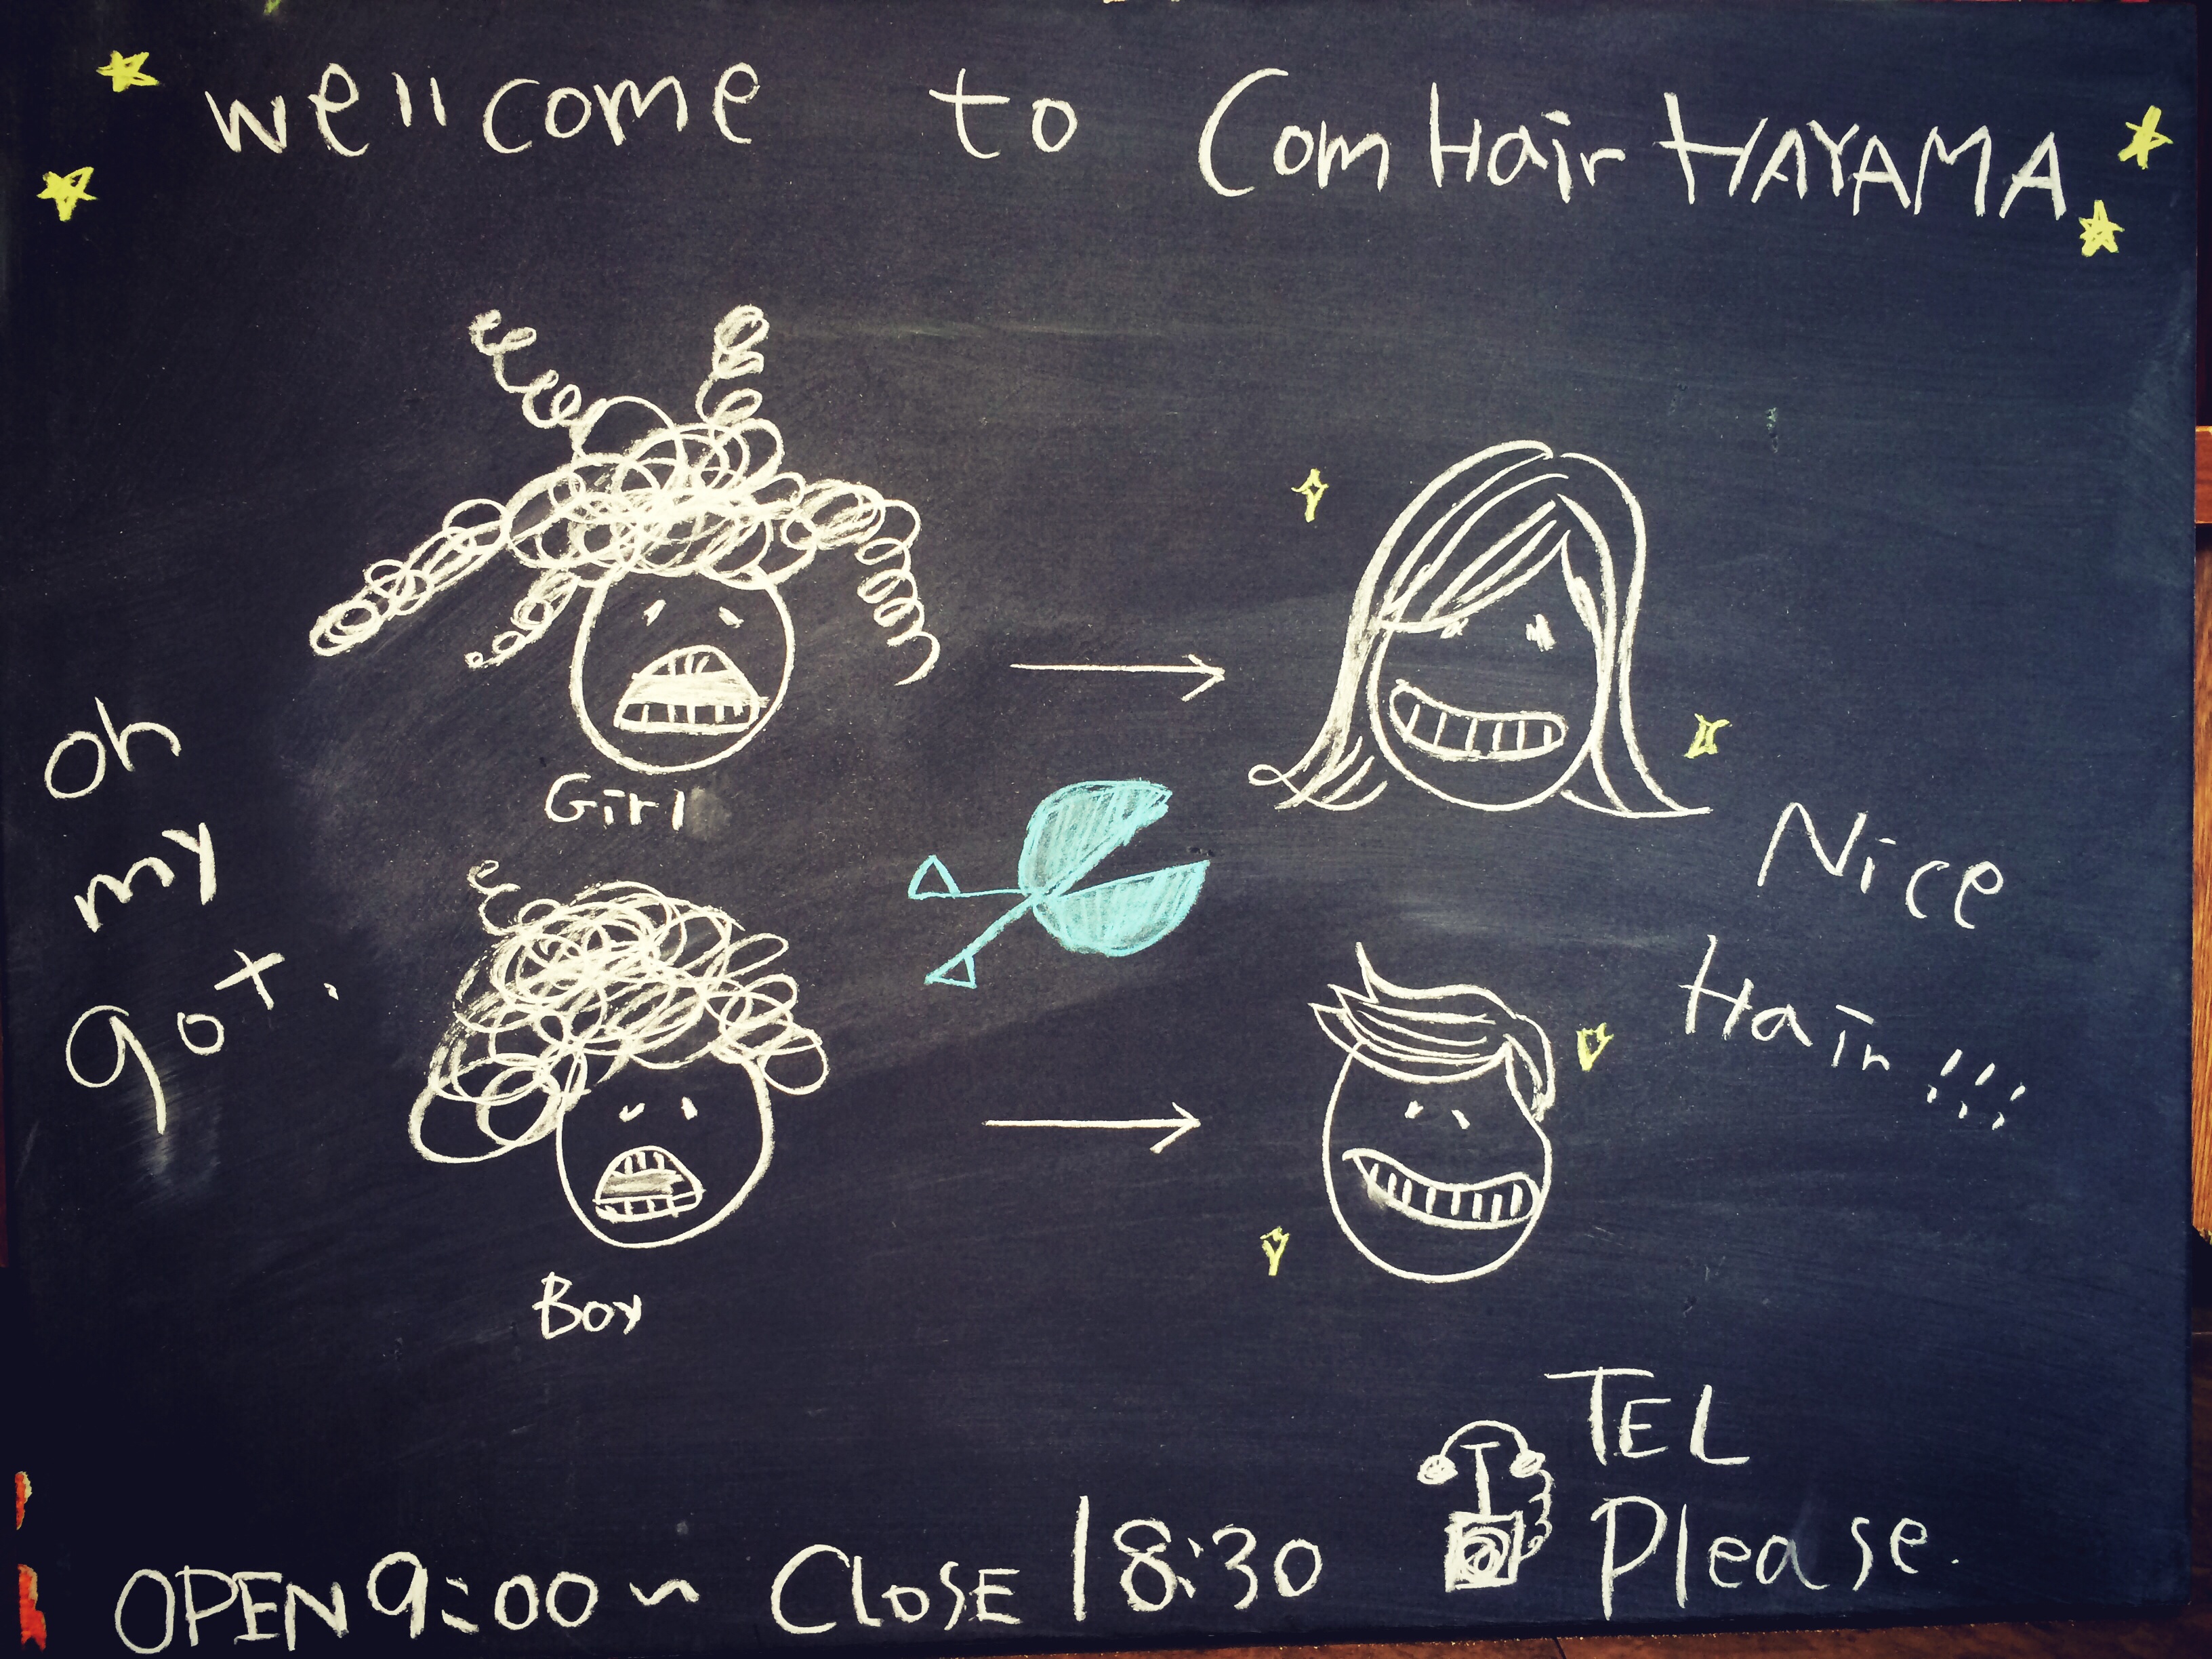 wellcome to Com Hair HAYAMA
Girl
oh
my
got.
Nice
Hair!!!
Boy
TEL
Please.
OPEN 9:00 ~ CLOSE 18:30